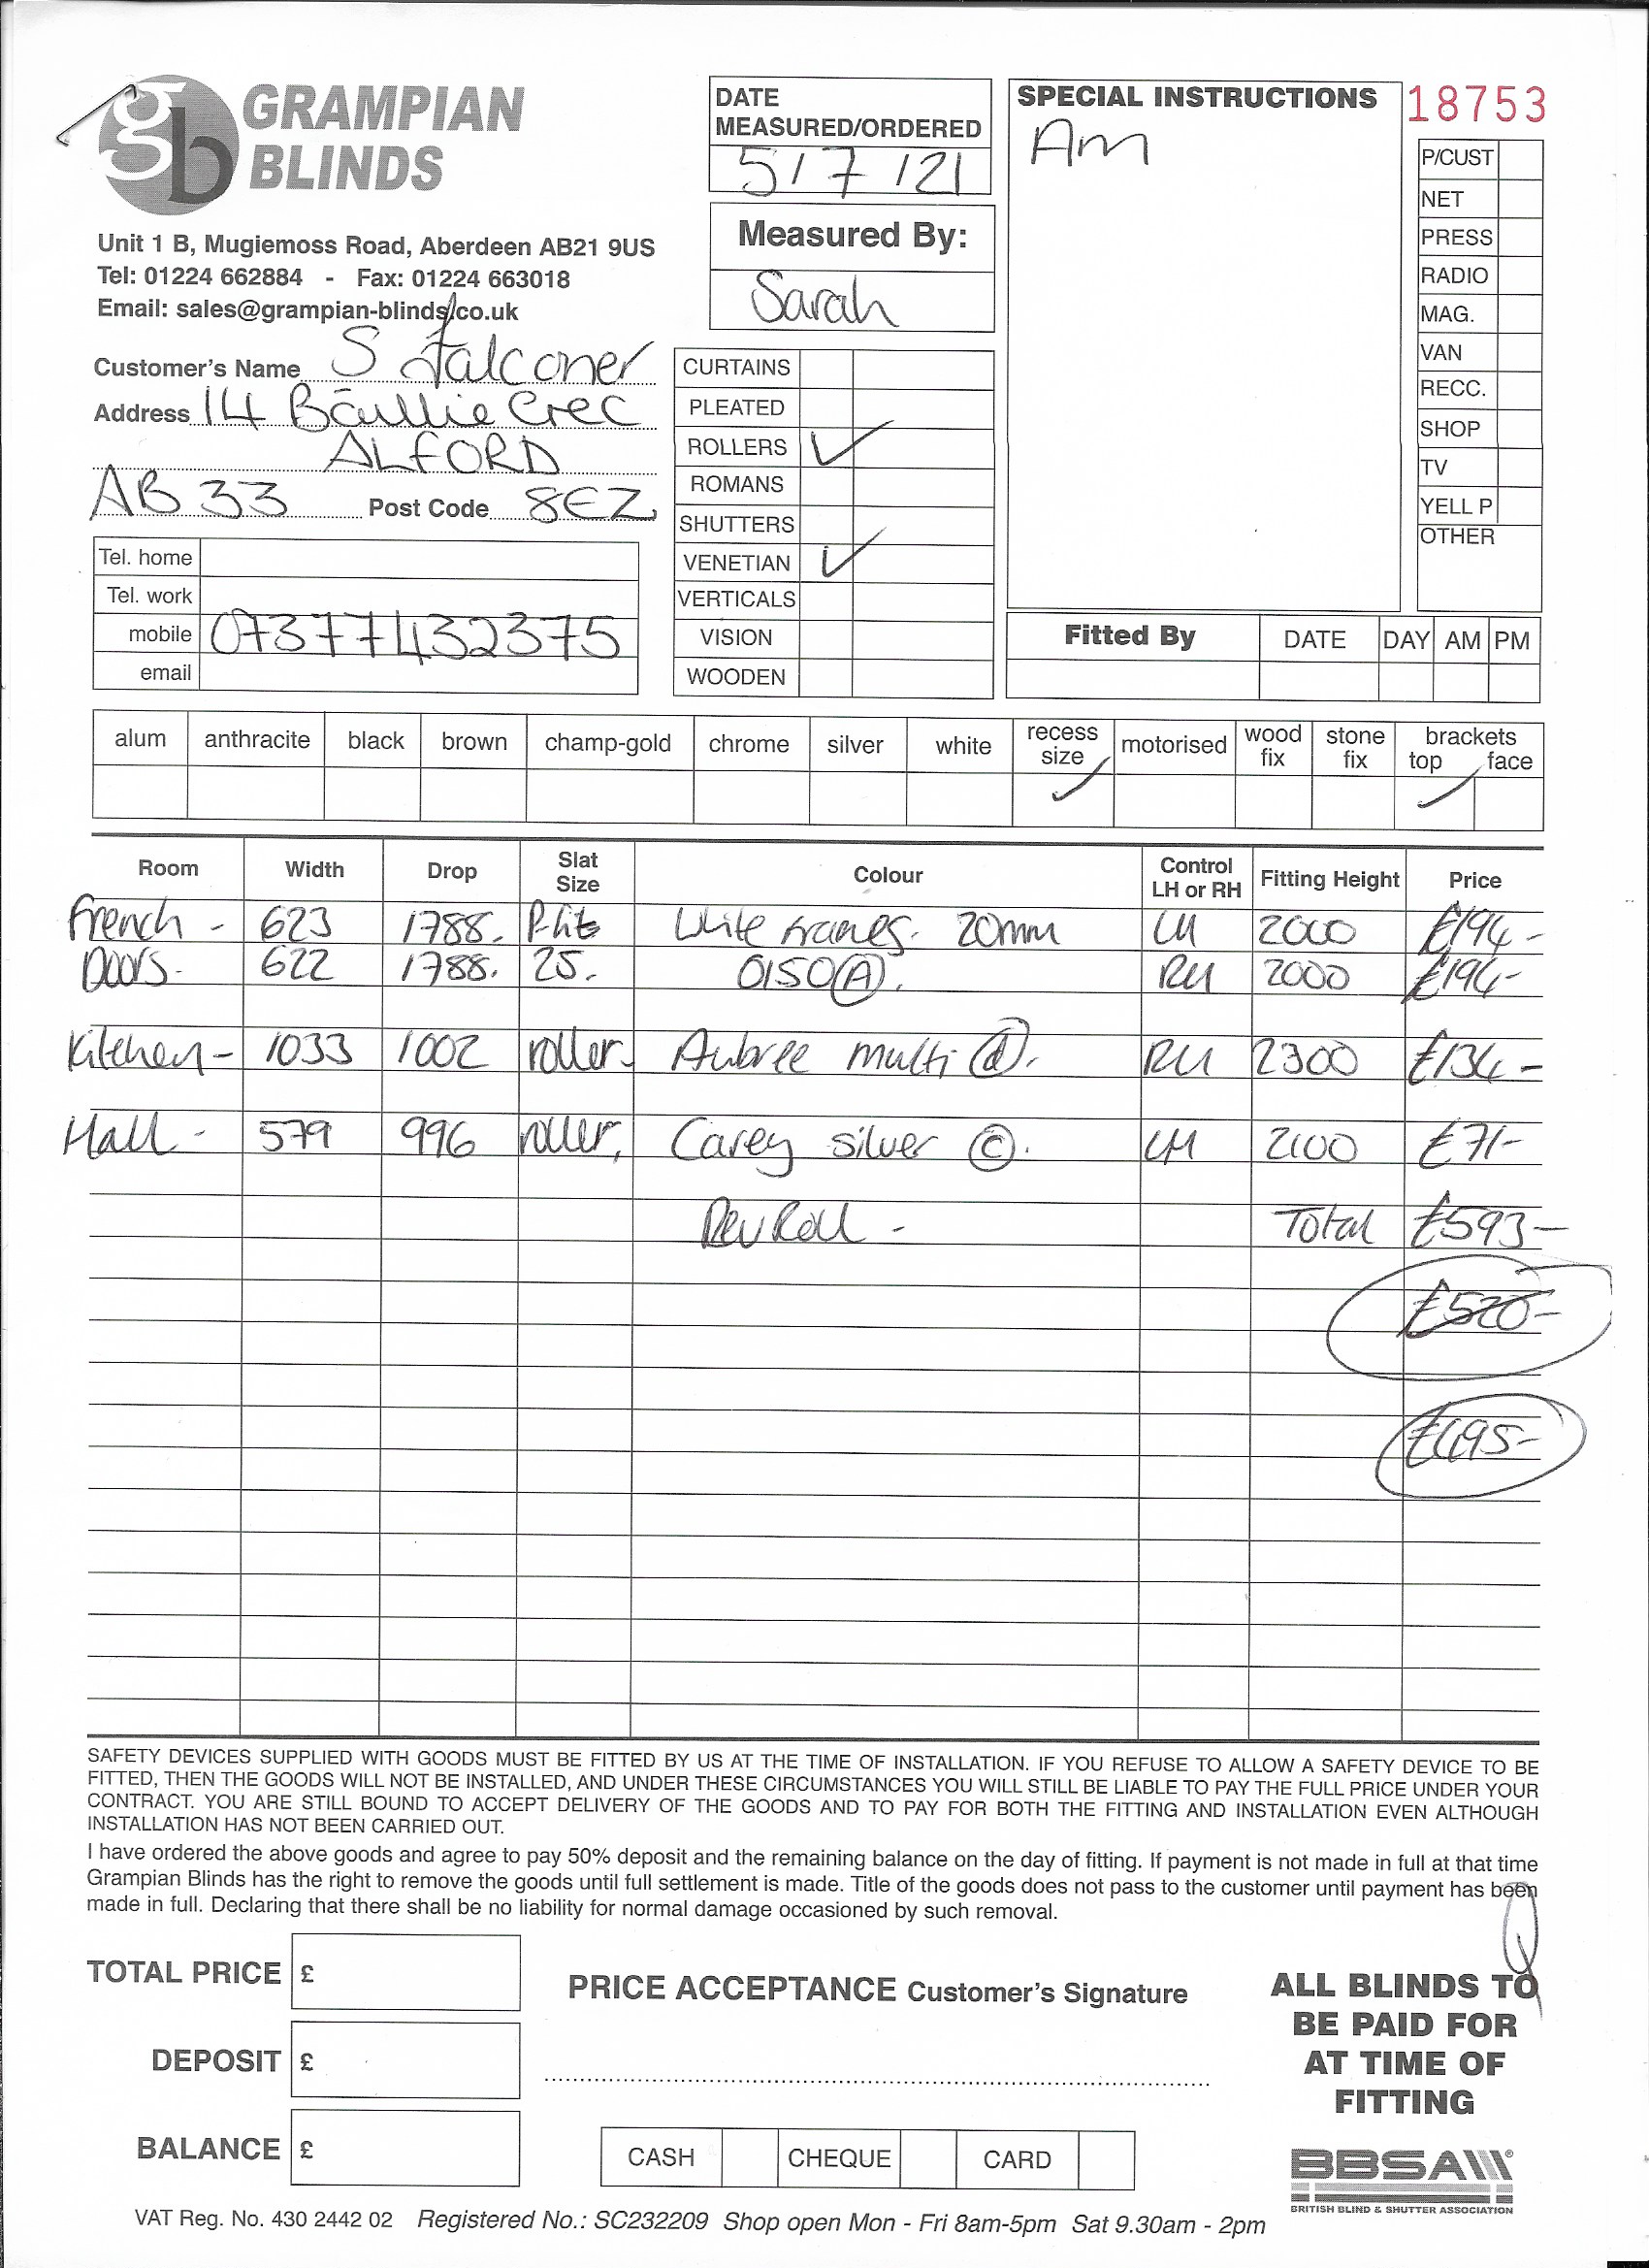 gb GRAMPIAN BLINDS
Unit 1 B, Mugiemoss Road, Aberdeen AB21 9US
Tel: 01224 662884 - Fax: 01224 663018
Email: sales@grampian-blinds.co.uk
Customer's Name S Falconer
Address 14 Baillie Cres
ALFORD
AB33 Post Code 8EZ
Tel. home
Tel. work
mobile 07377432375
email
DATE
MEASURED/ORDERED
5/7/21
Measured By:
Sarah
CURTAINS
PLEATED
ROLLERS ✓
ROMANS
SHUTTERS
VENETIAN ✓
VERTICALS
VISION
WOODEN
SPECIAL INSTRUCTIONS
Am
18753
P/CUST
NET
PRESS
RADIO
MAG.
VAN
RECC.
SHOP
TV
YELL P
OTHER
Fitted By DATE DAY AM PM
alum anthracite black brown champ-gold chrome silver white recess size ✓ motorised wood fix stone fix brackets top ✓ face
Room Width Drop Slat Size Colour Control LH or RH Fitting Height Price
French - 623 1788. P-fit White frames. 20mm LH 2000 £194-
Doors. 622 1788. 25. 0150 (A). RH 2000 £194-
Kitchen - 1033 1002 roller. Aubree multi (d). RH 2300 £134-
Hall - 579 996 roller, Carey silver (c). LH 2100 £71-
Rev Roll - Total £593-
£520-
£495-
SAFETY DEVICES SUPPLIED WITH GOODS MUST BE FITTED BY US AT THE TIME OF INSTALLATION. IF YOU REFUSE TO ALLOW A SAFETY DEVICE TO BE
FITTED, THEN THE GOODS WILL NOT BE INSTALLED, AND UNDER THESE CIRCUMSTANCES YOU WILL STILL BE LIABLE TO PAY THE FULL PRICE UNDER YOUR
CONTRACT. YOU ARE STILL BOUND TO ACCEPT DELIVERY OF THE GOODS AND TO PAY FOR BOTH THE FITTING AND INSTALLATION EVEN ALTHOUGH
INSTALLATION HAS NOT BEEN CARRIED OUT.
I have ordered the above goods and agree to pay 50% deposit and the remaining balance on the day of fitting. If payment is not made in full at that time
Grampian Blinds has the right to remove the goods until full settlement is made. Title of the goods does not pass to the customer until payment has been
made in full. Declaring that there shall be no liability for normal damage occasioned by such removal.
TOTAL PRICE £
DEPOSIT £
BALANCE £
PRICE ACCEPTANCE Customer's Signature
CASH CHEQUE CARD
ALL BLINDS TO
BE PAID FOR
AT TIME OF
FITTING
BBSA
BRITISH BLIND & SHUTTER ASSOCIATION
VAT Reg. No. 430 2442 02 Registered No.: SC232209 Shop open Mon - Fri 8am-5pm Sat 9.30am - 2pm